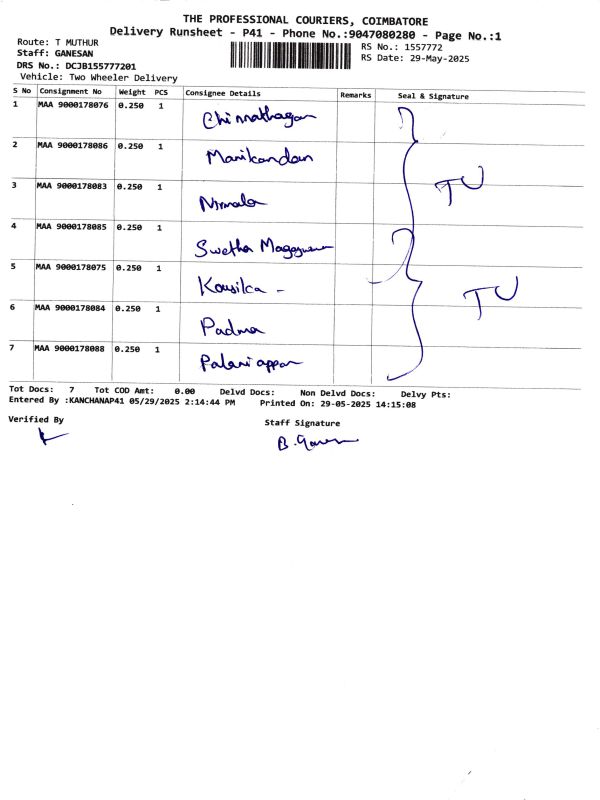 THE PROFESSIONAL COURIERS, COIMBATORE
Delivery Runsheet - P41 - Phone No.:9047080280 - Page No.:1
Route: T MUTHUR
Staff: GANESAN
DRS No.: DCJB155777201
Vehicle: Two Wheeler Delivery
RS No.: 1557772
RS Date: 29-May-2025
S No Consignment No Weight PCS Consignee Details Remarks Seal & Signature
1 MAA 9000178076 0.250 1 Chinnathagan
2 MAA 9000178086 0.250 1 Manikandan
TU
3 MAA 9000178083 0.250 1 Nirmala
4 MAA 9000178085 0.250 1 Swetha
5 MAA 9000178075 0.250 1 Kousilca -
TU
6 MAA 9000178084 0.250 1 Padma
7 MAA 9000178088 0.250 1 Palaniappan
Tot Docs: 7 Tot COD Amt: 0.00 Delvd Docs: Non Delvd Docs: Delvy Pts:
Entered By :KANCHANAP41 05/29/2025 2:14:44 PM Printed On: 29-05-2025 14:15:08
Verified By
Staff Signature